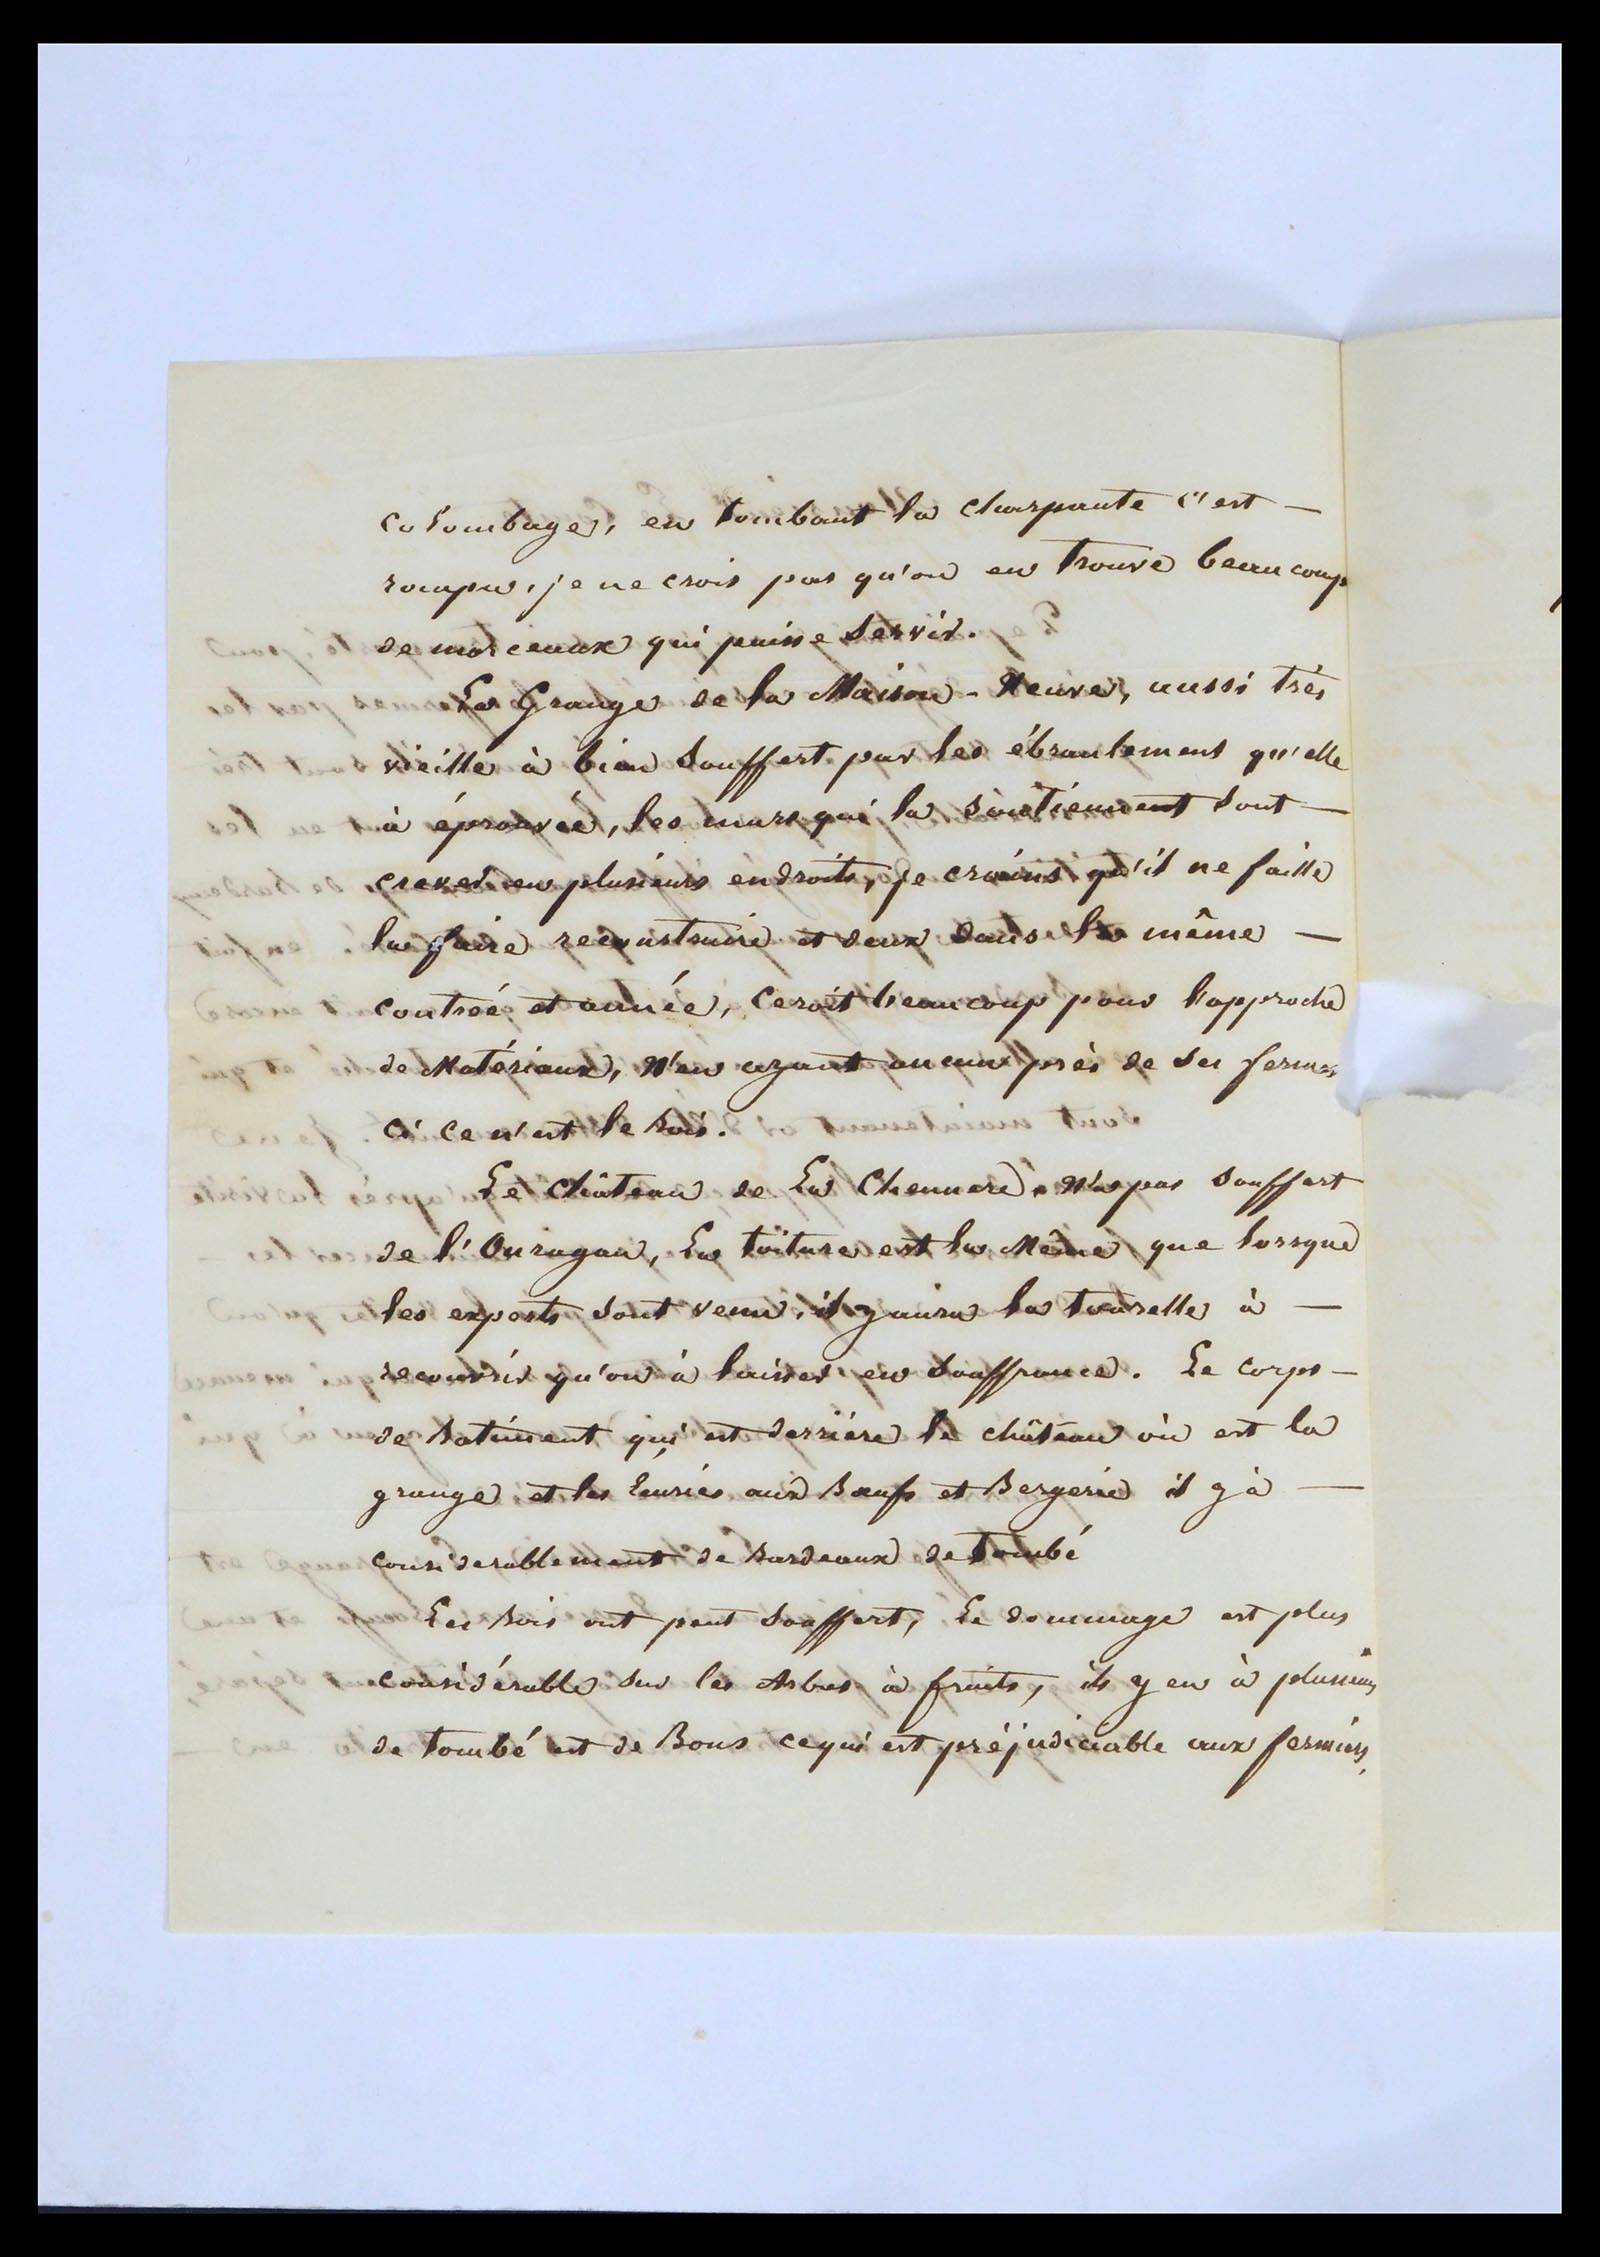 colombage, en tombant la charpante c'est —
rompu, je ne crois pas qu'on en trouve beaucoup
de morceaux qui puisse servir.
La Grange de la Maison-Neuve, aussi très
vieille à bien souffert par les ébranlement qu'elle
à éprouvée, les murs qui la soutiennent sont —
crevés en plusieurs endroits, je crains qu'il ne faille
la faire reconstruire et deux dans la même —
contrée et année, ceroit beaucoup pour l'approche
de Matériaux, N'en ayant aucun près de ses fermes
ci ce n'est le Bois.
Le Château de La Chennere, N'a pas souffert
de l'Ouragan, La toiture est la Même que lorsque
les experts sont venu, il y aura la tourelle à —
recouvrir qu'on à laisser en souffrance. Le corps —
de Batiment qui est derrière le château où est la
grange et les Écuries aux Bœufs et Bergerie il y à —
considerablement de Bardeaux de tombé
Les Bois ont peut souffert, Le dommage est plus
considérable sur les Arbres à fruits, ils y en à plusieurs
de tombé et de Bons ce qui est préjudiciable aux fermiers,